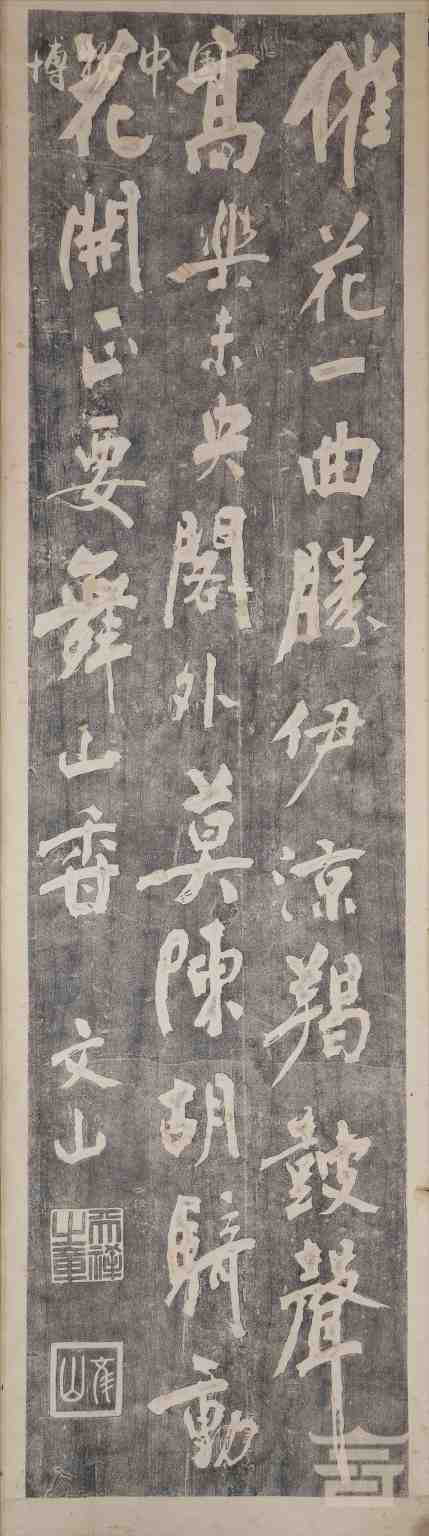 催花一曲勝伊涼羯鼓聲
高樂未央閣外莫陳胡騎動
花開正要舞山香
文山
文山
博物中国